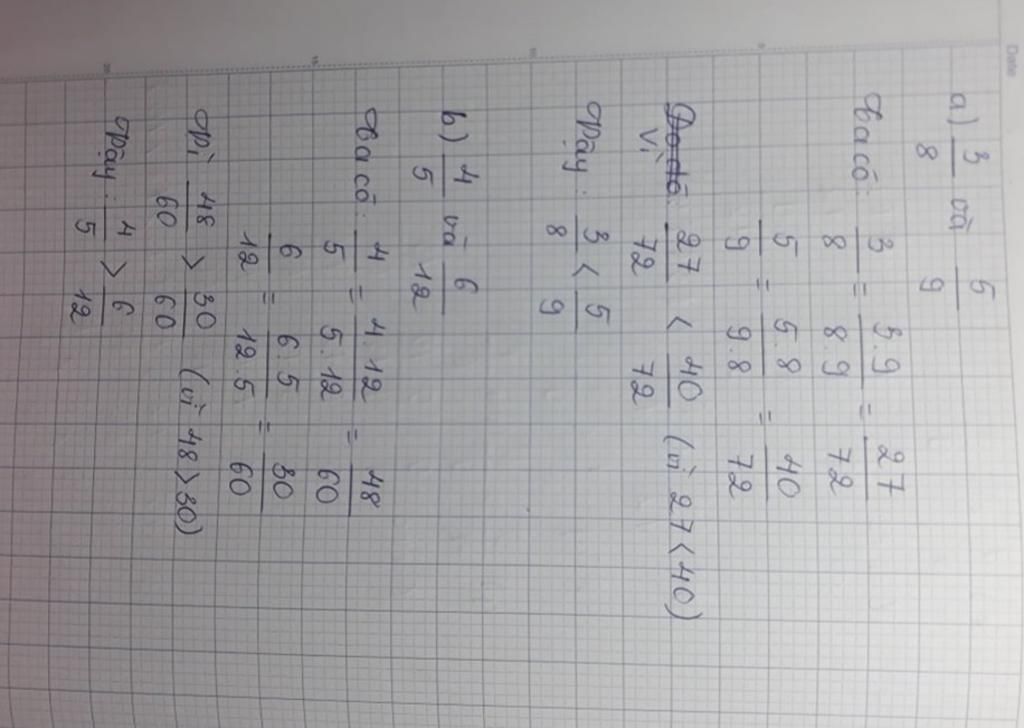 Date
a) 3/8 và 5/9
Ta có: 3/8 = 3.9/8 9 = 27/72
5/9 = 5.8/9.8 = 40/72
Do đó
Vì 27/72 < 40/72 (vì 27 < 40)
Vậy: 3/8 < 5/9
b) 4/5 và 6/12
Ta có: 4/5 = 4.12/5.12 = 48/60
6/12 = 6.5/12.5 = 30/60
Vì 48/60 > 30/60 (vì 48 > 30)
Vậy: 4/5 > 6/12